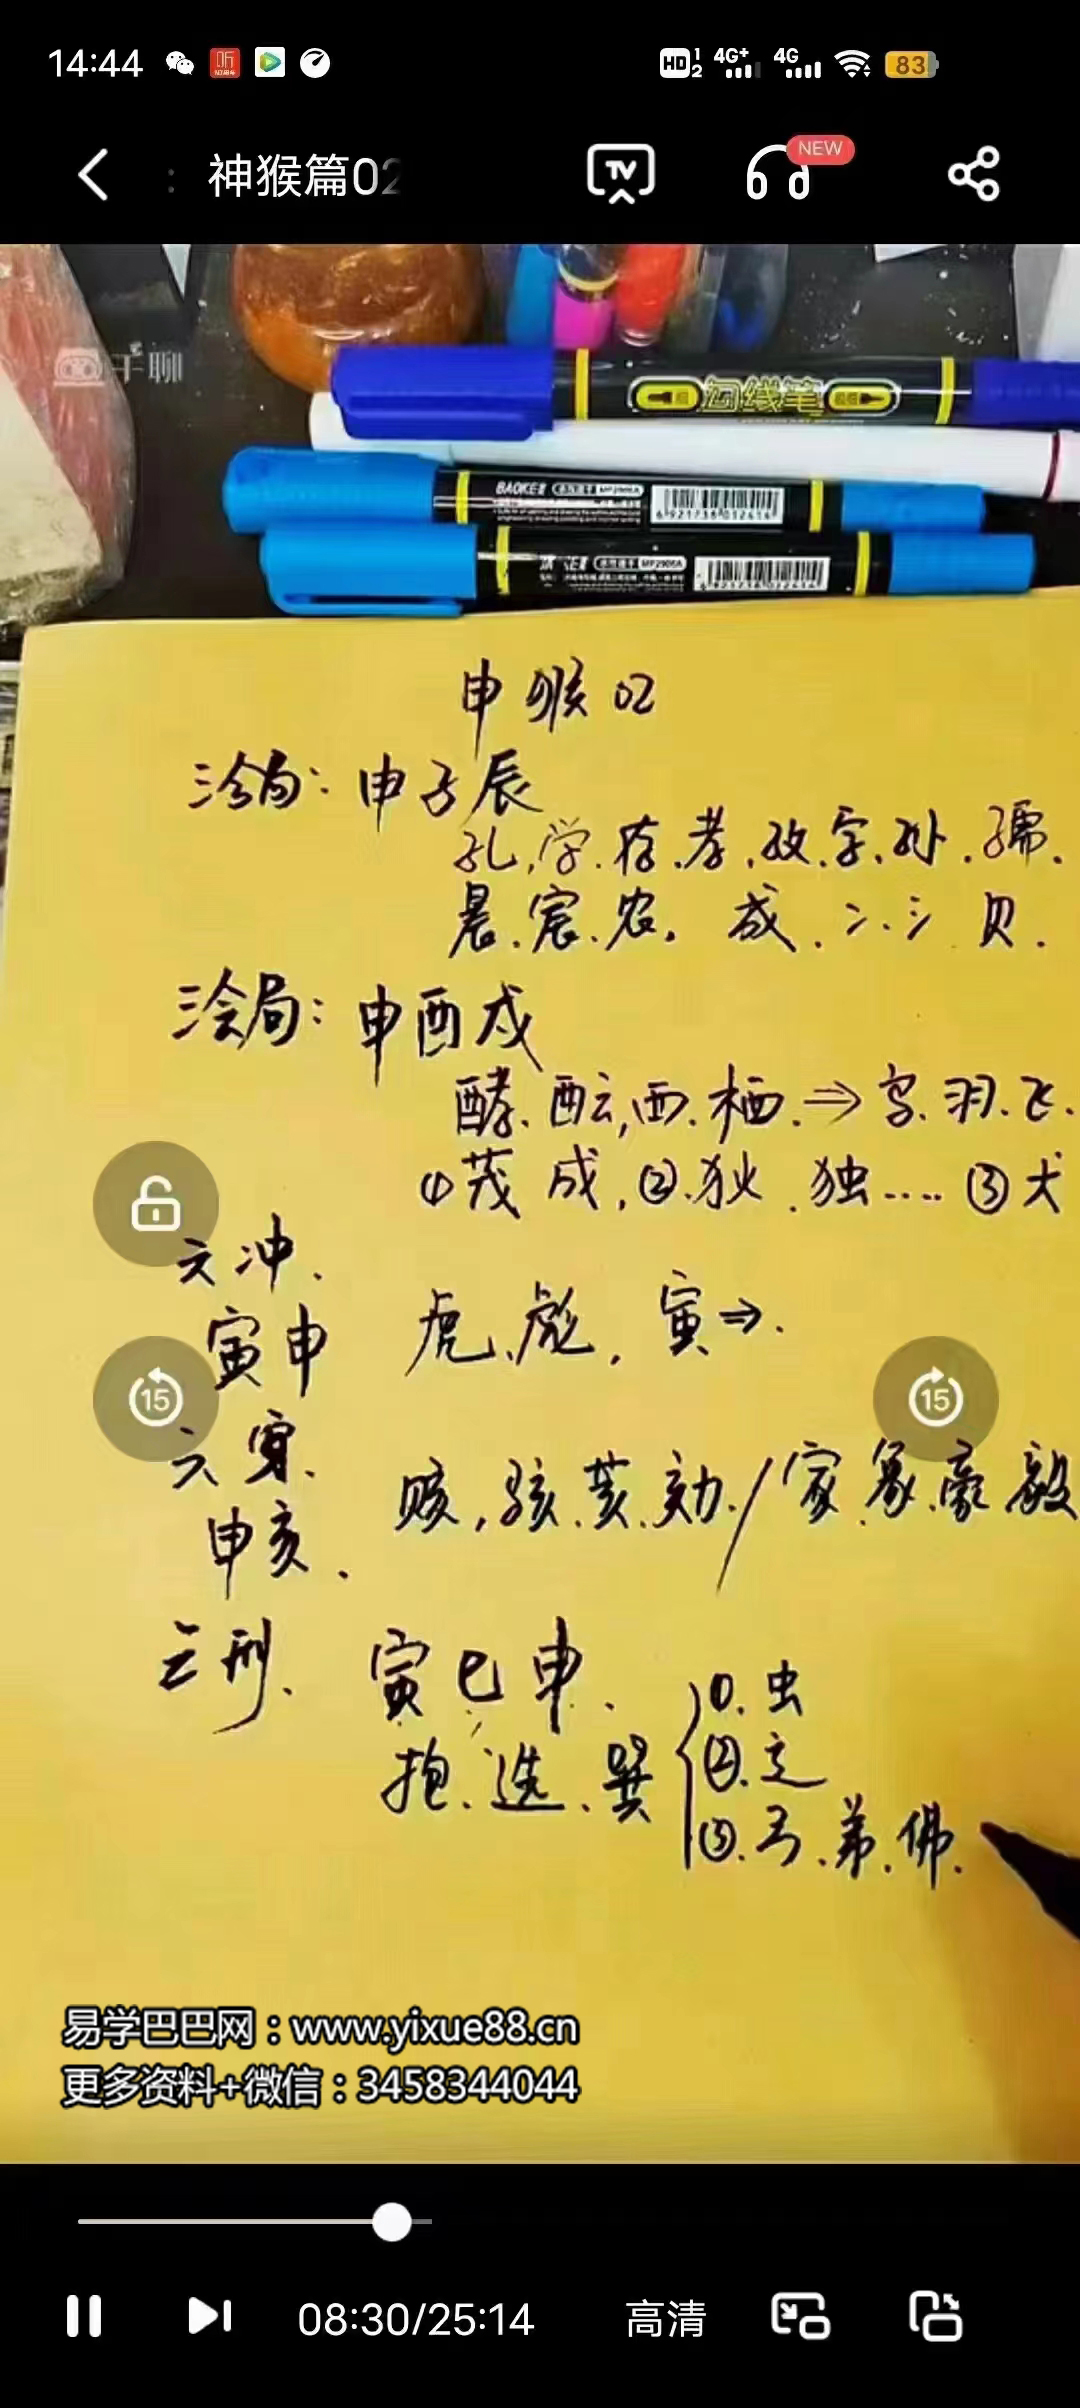 14:44 HD 1 2 4G+ 4G 83
: 神猴篇02
TV NEW
千聊
勾线笔
BAOKE MP2906A
6921738012414
MP2906A
申猴02
三合局: 申子辰
孔.学.存.孝.孜.字.孙.孺.
晨.宸.农. 成.冫.氵贝.
三会局: 申酉戌
酵.酝,西.栖.⇒鸟.羽.飞.
①茂 成,②.狄.独.... ③犬
六冲.
寅申 虎.彪.寅⇒.
15 15
六穿.
申亥. 赅,骇.荄.劾./家.象.豪.毅
三刑. 寅巳申.
抱.选.巽
①.虫
②.辶
③.弓.弟.佛.
易学巴巴网:www.yixue88.cn
更多资料+微信:3458344044
08:30/25:14 高清